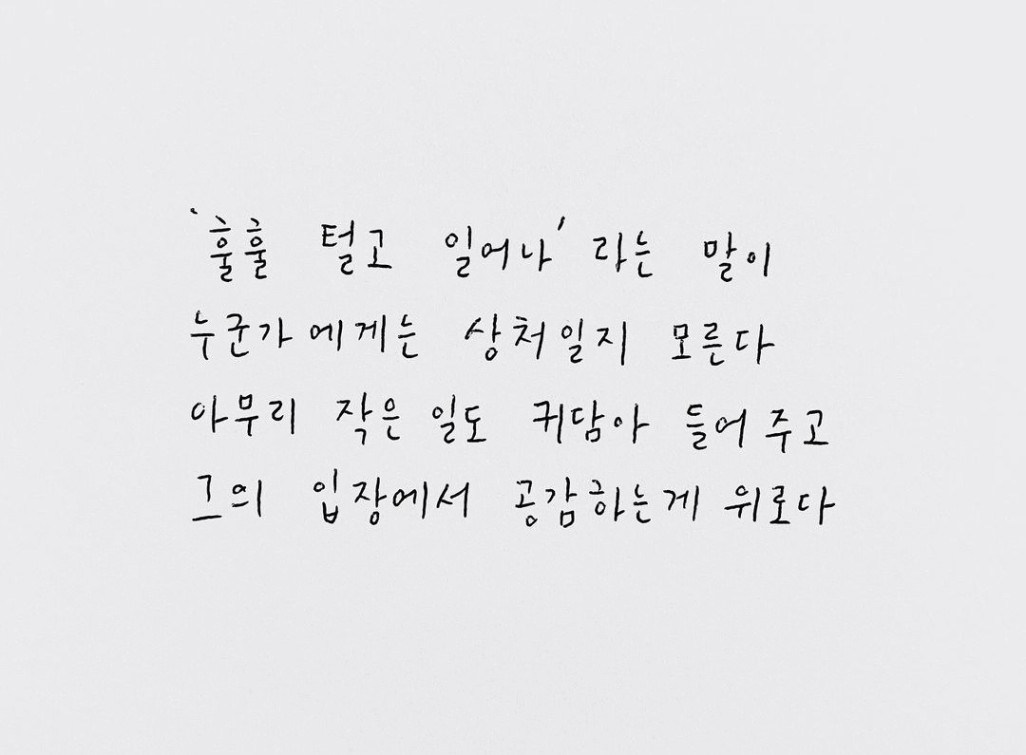 '훌훌 털고 일어나' 라는 말이
누군가에게는 상처일지 모른다
아무리 작은 일도 귀담아 들어주고
그의 입장에서 공감하는게 위로다